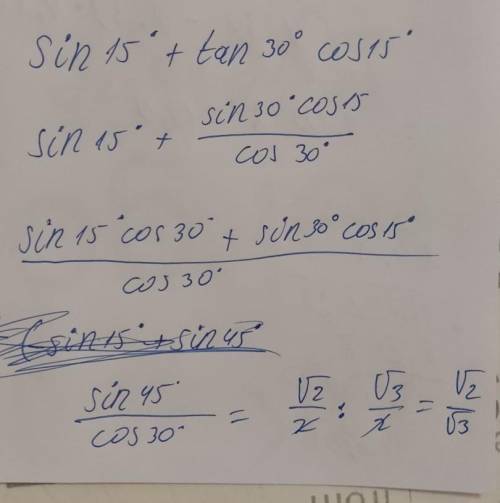 sin 15° + tan 30° cos 15°
sin 15° + sin 30° cos 15 / cos 30°
sin 15° cos 30° + sin 30° cos 15° / cos 30°
(sin 15° + sin 45°
sin 45° / cos 30° = √2/2 : √3/2 = √2/√3